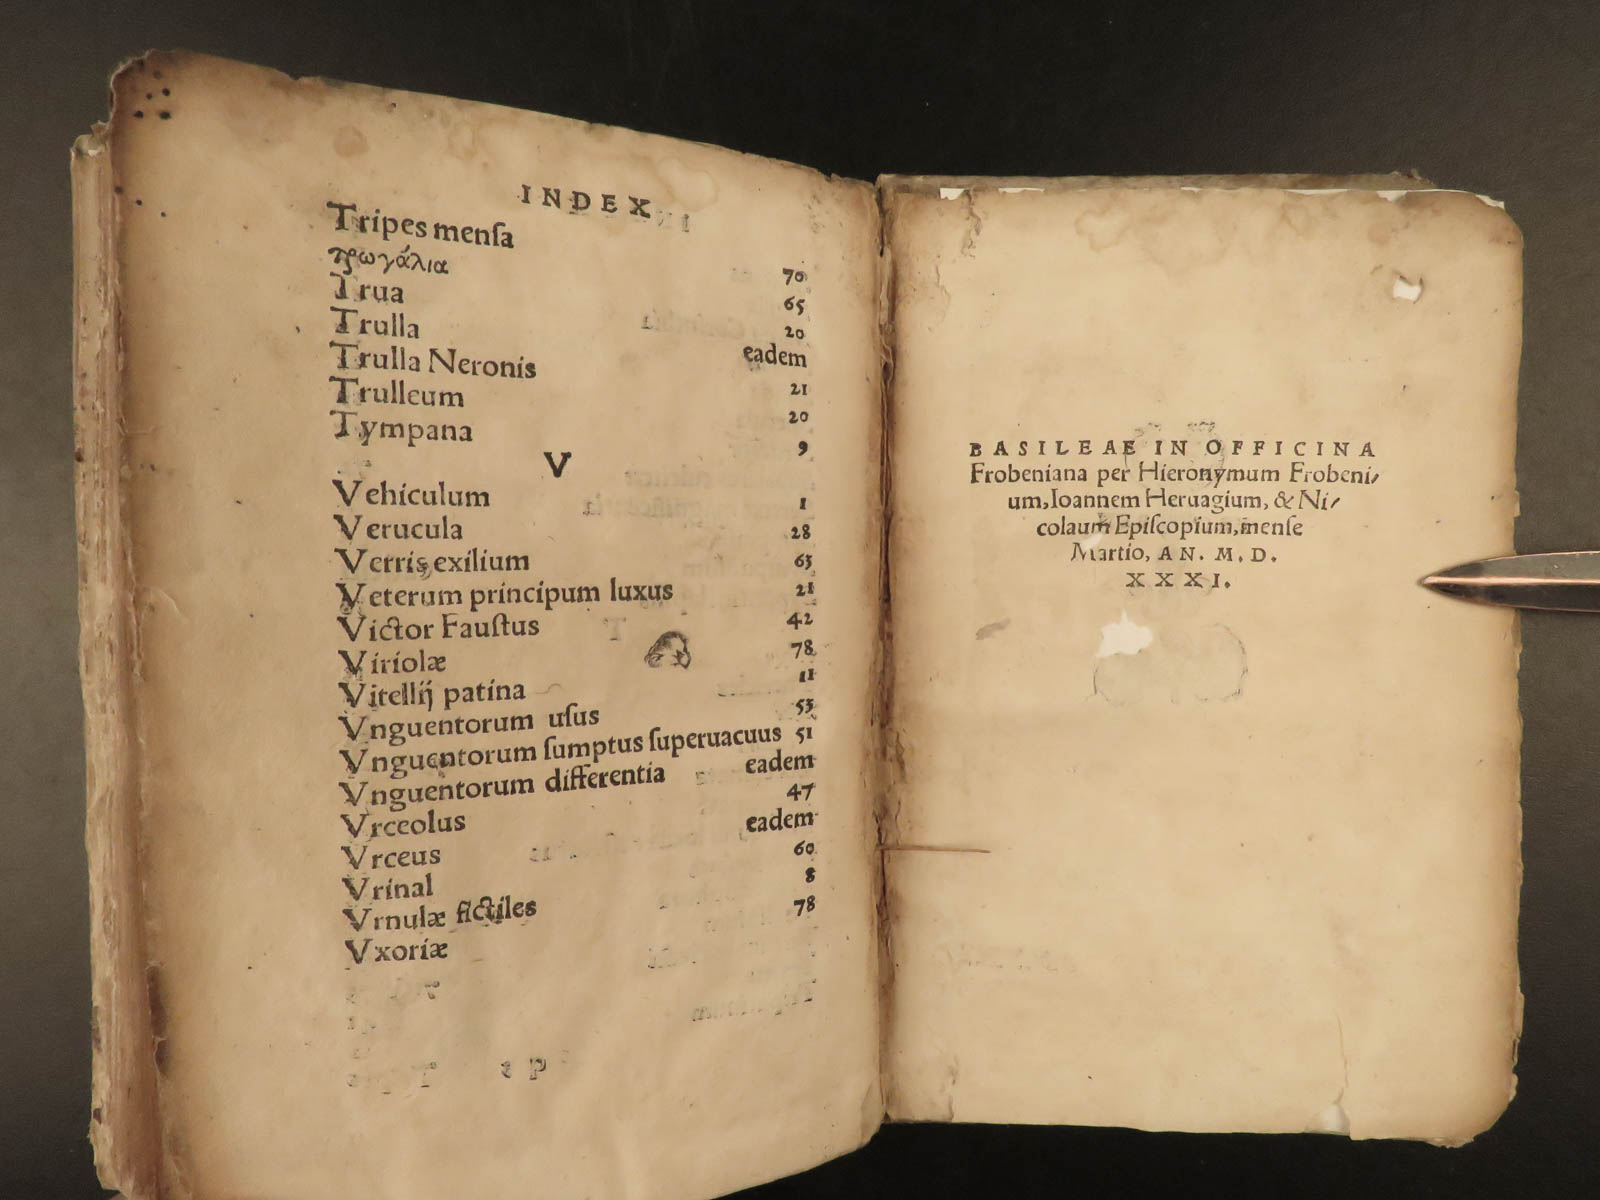 INDEX
Tripes menſa 70
τρωγάλια 65
Trua 20
Trulla eadem
Trulla Neronis 21
Trulleum 20
Tympana 9
V
Vehiculum 1
Verucula 28
Verris exilium 63
Veterum principum luxus 21
Victor Fauſtus 42
Viriolæ 78
Vitellij patina 11
Vnguentorum uſus 53
Vnguentorum ſumptus ſuperuacuus 51
Vnguentorum differentia eadem
Vrceolus 47
Vrceus eadem
Vrinal 60
Vrnulæ fictiles 8
Vxoriæ 78
BASILEAE IN OFFICINA
Frobeniana per Hieronymum Frobeni/
um, Ioannem Heruagium, & Ni/
colaum Epiſcopium, menſe
Martio, AN. M. D.
XXXI.